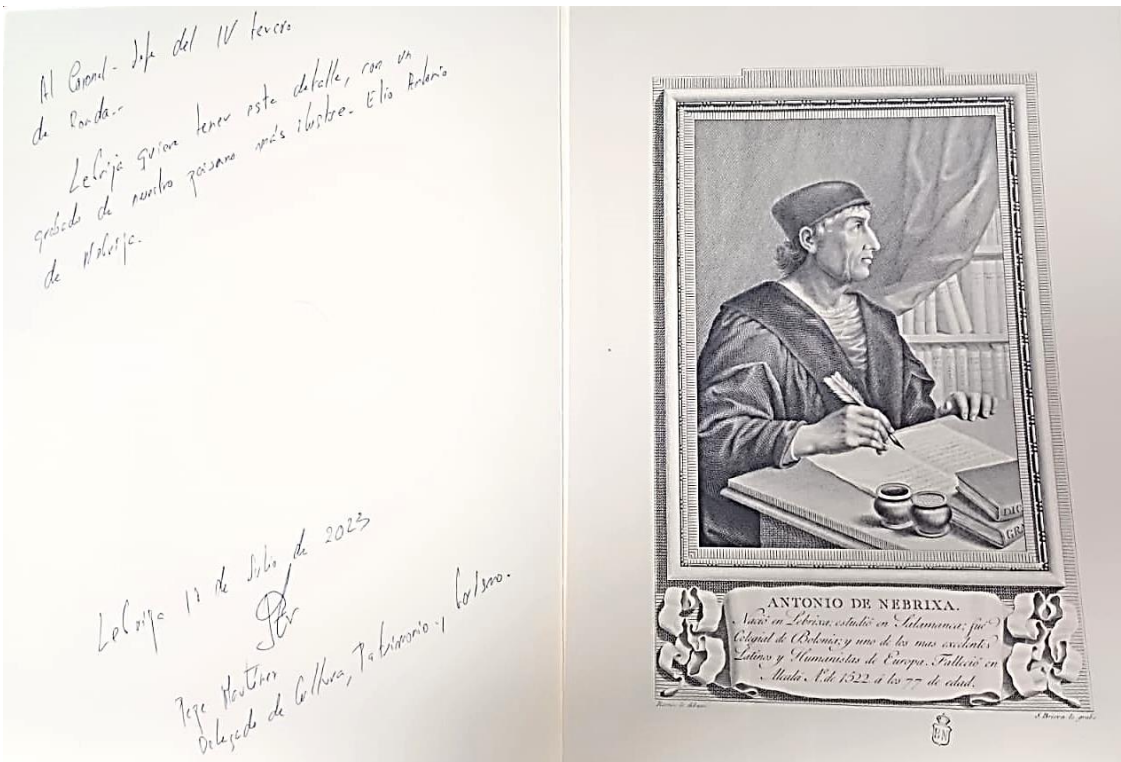 Al Coronel-Jefe del IV tercio
de Ronda.-
Lebrija quiere tener este detalle, con un
grabado de nuestro paisano más ilustre- Elio Antonio
de Nebrija.
Lebrija 1º de Julio de 2023
Pepe Martínez
Delegado de Cultura, Patrimonio y
DIC
GRA
ANTONIO DE NEBRIXA.
Nació en Lebrixa; estudió en Salamanca; fué
Colegial de Bolonia; y uno de los mas excelentes
Latinos y Humanistas de Europa. Falleció en
Alcalá A. de 1522 á los 77 de edad.
BN